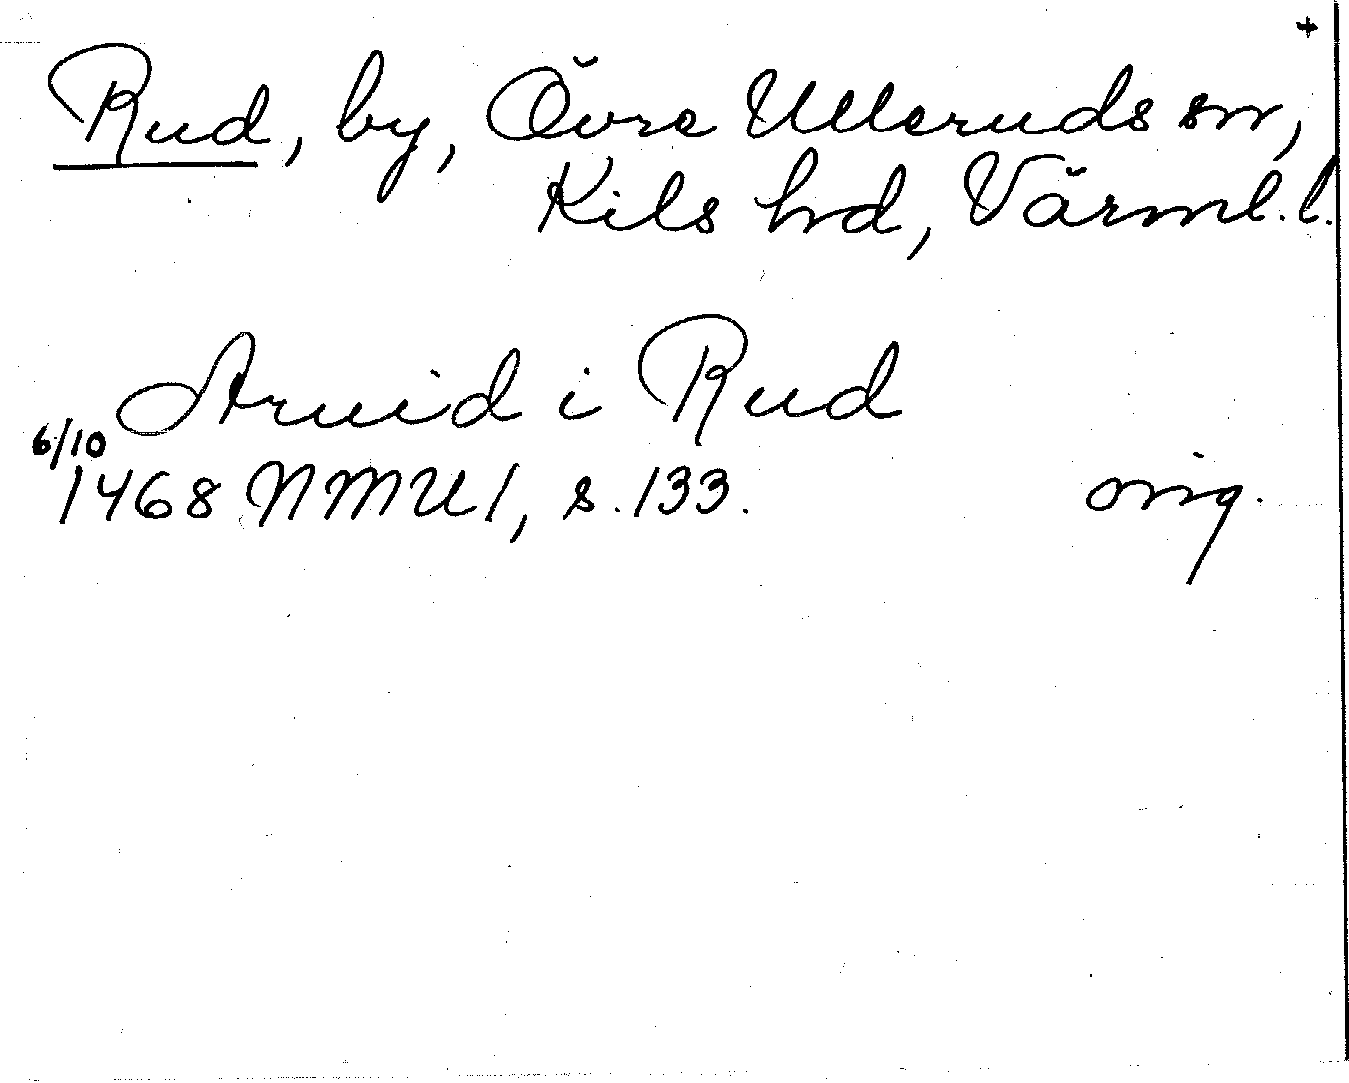 +
Rud, by, Övre Ulleruds sn,
Kils hd, Värml. l.
Arvid i Rud
6/10
1468 NMU 1, s. 133. orig.